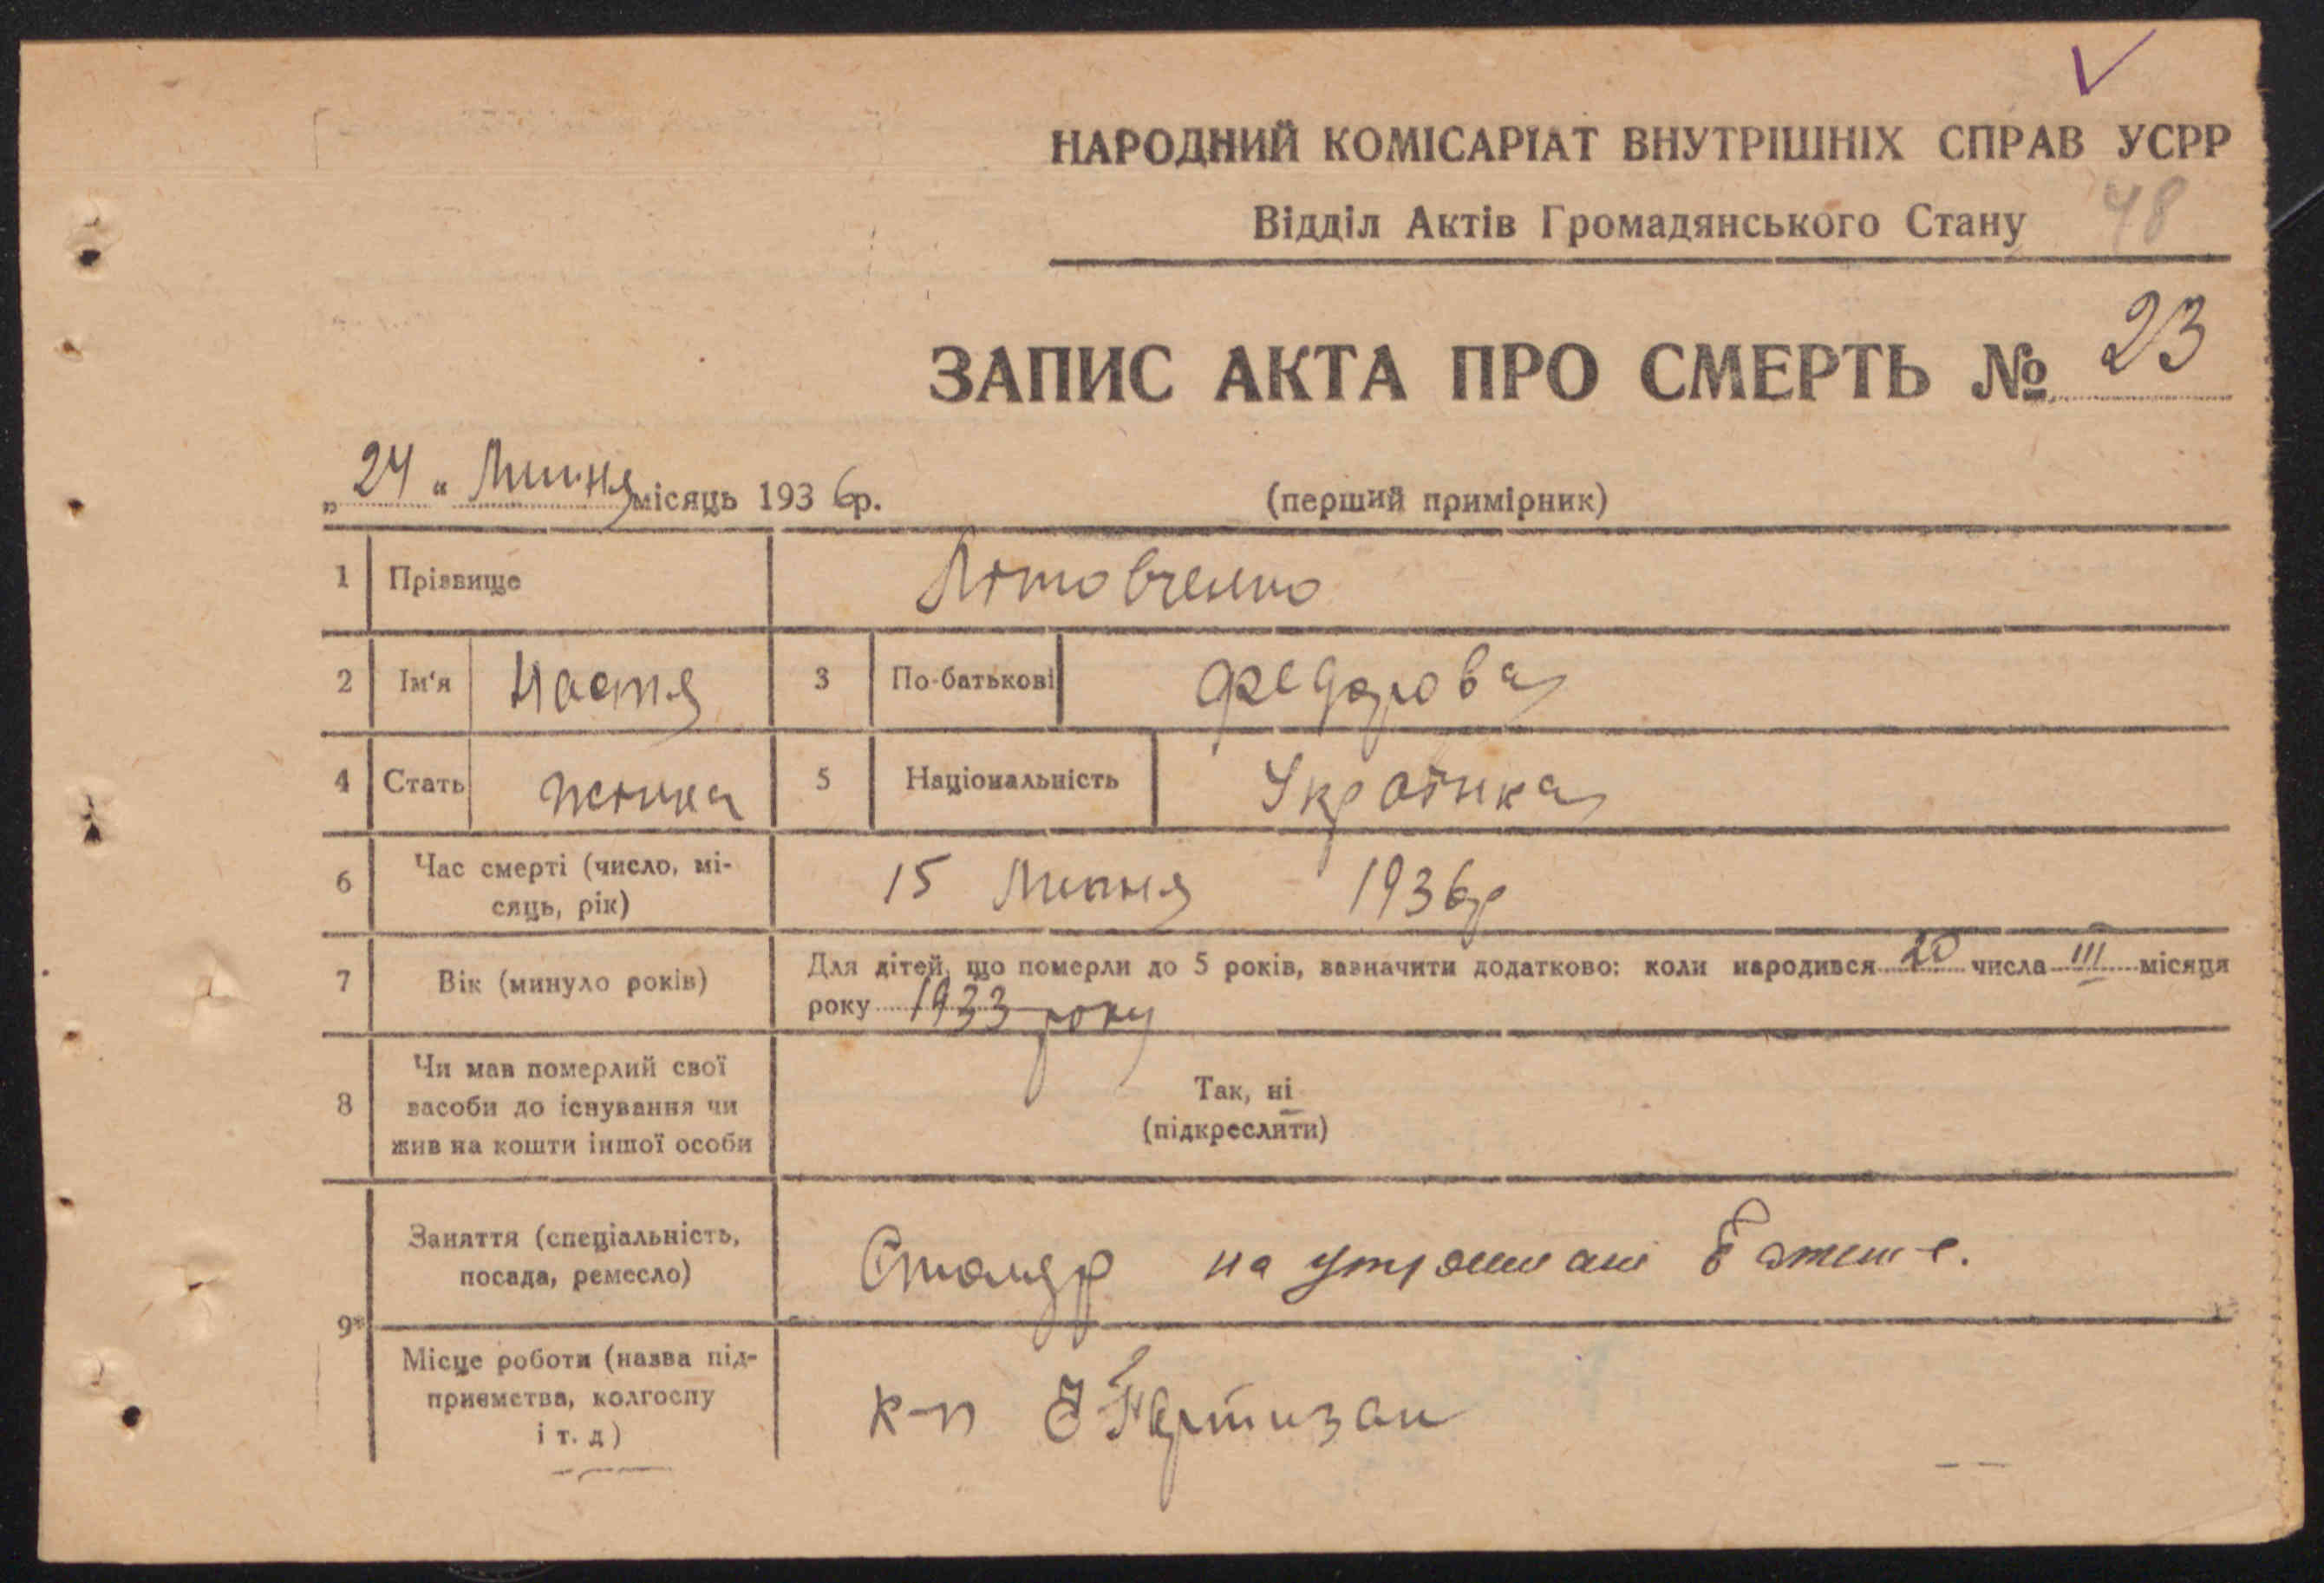 НАРОДНИЙ КОМІСАРІАТ ВНУТРІШНІХ СПРАВ УСРР
Відділ Актів Громадянського Стану 48
ЗАПИС АКТА ПРО СМЕРТЬ № 23
„ 24 “ Липня місяць 193 6 р. (перший примірник)
1 Прізвище Літовченко
2 Ім'я Настя 3 По-батькові Федорова
4 Стать жінка 5 Національність Українка
6 Час смерті (число, мі-
сяць, рік) 15 Липня 1936 р
7 Вік (минуло років) Для дітей, що померли до 5 років, зазначити додатково: коли народився 20 числа III місяця
року 1933 року
8 Чи мав померлий свої
засоби до існування чи
жив на кошти іншої особи
Так, ні
(підкреслити)
9*
Заняття (спеціальність,
посада, ремесло) Столяр на
Місце роботи (назва під-
приємства, колгоспу
і т. д) к-п Партизан